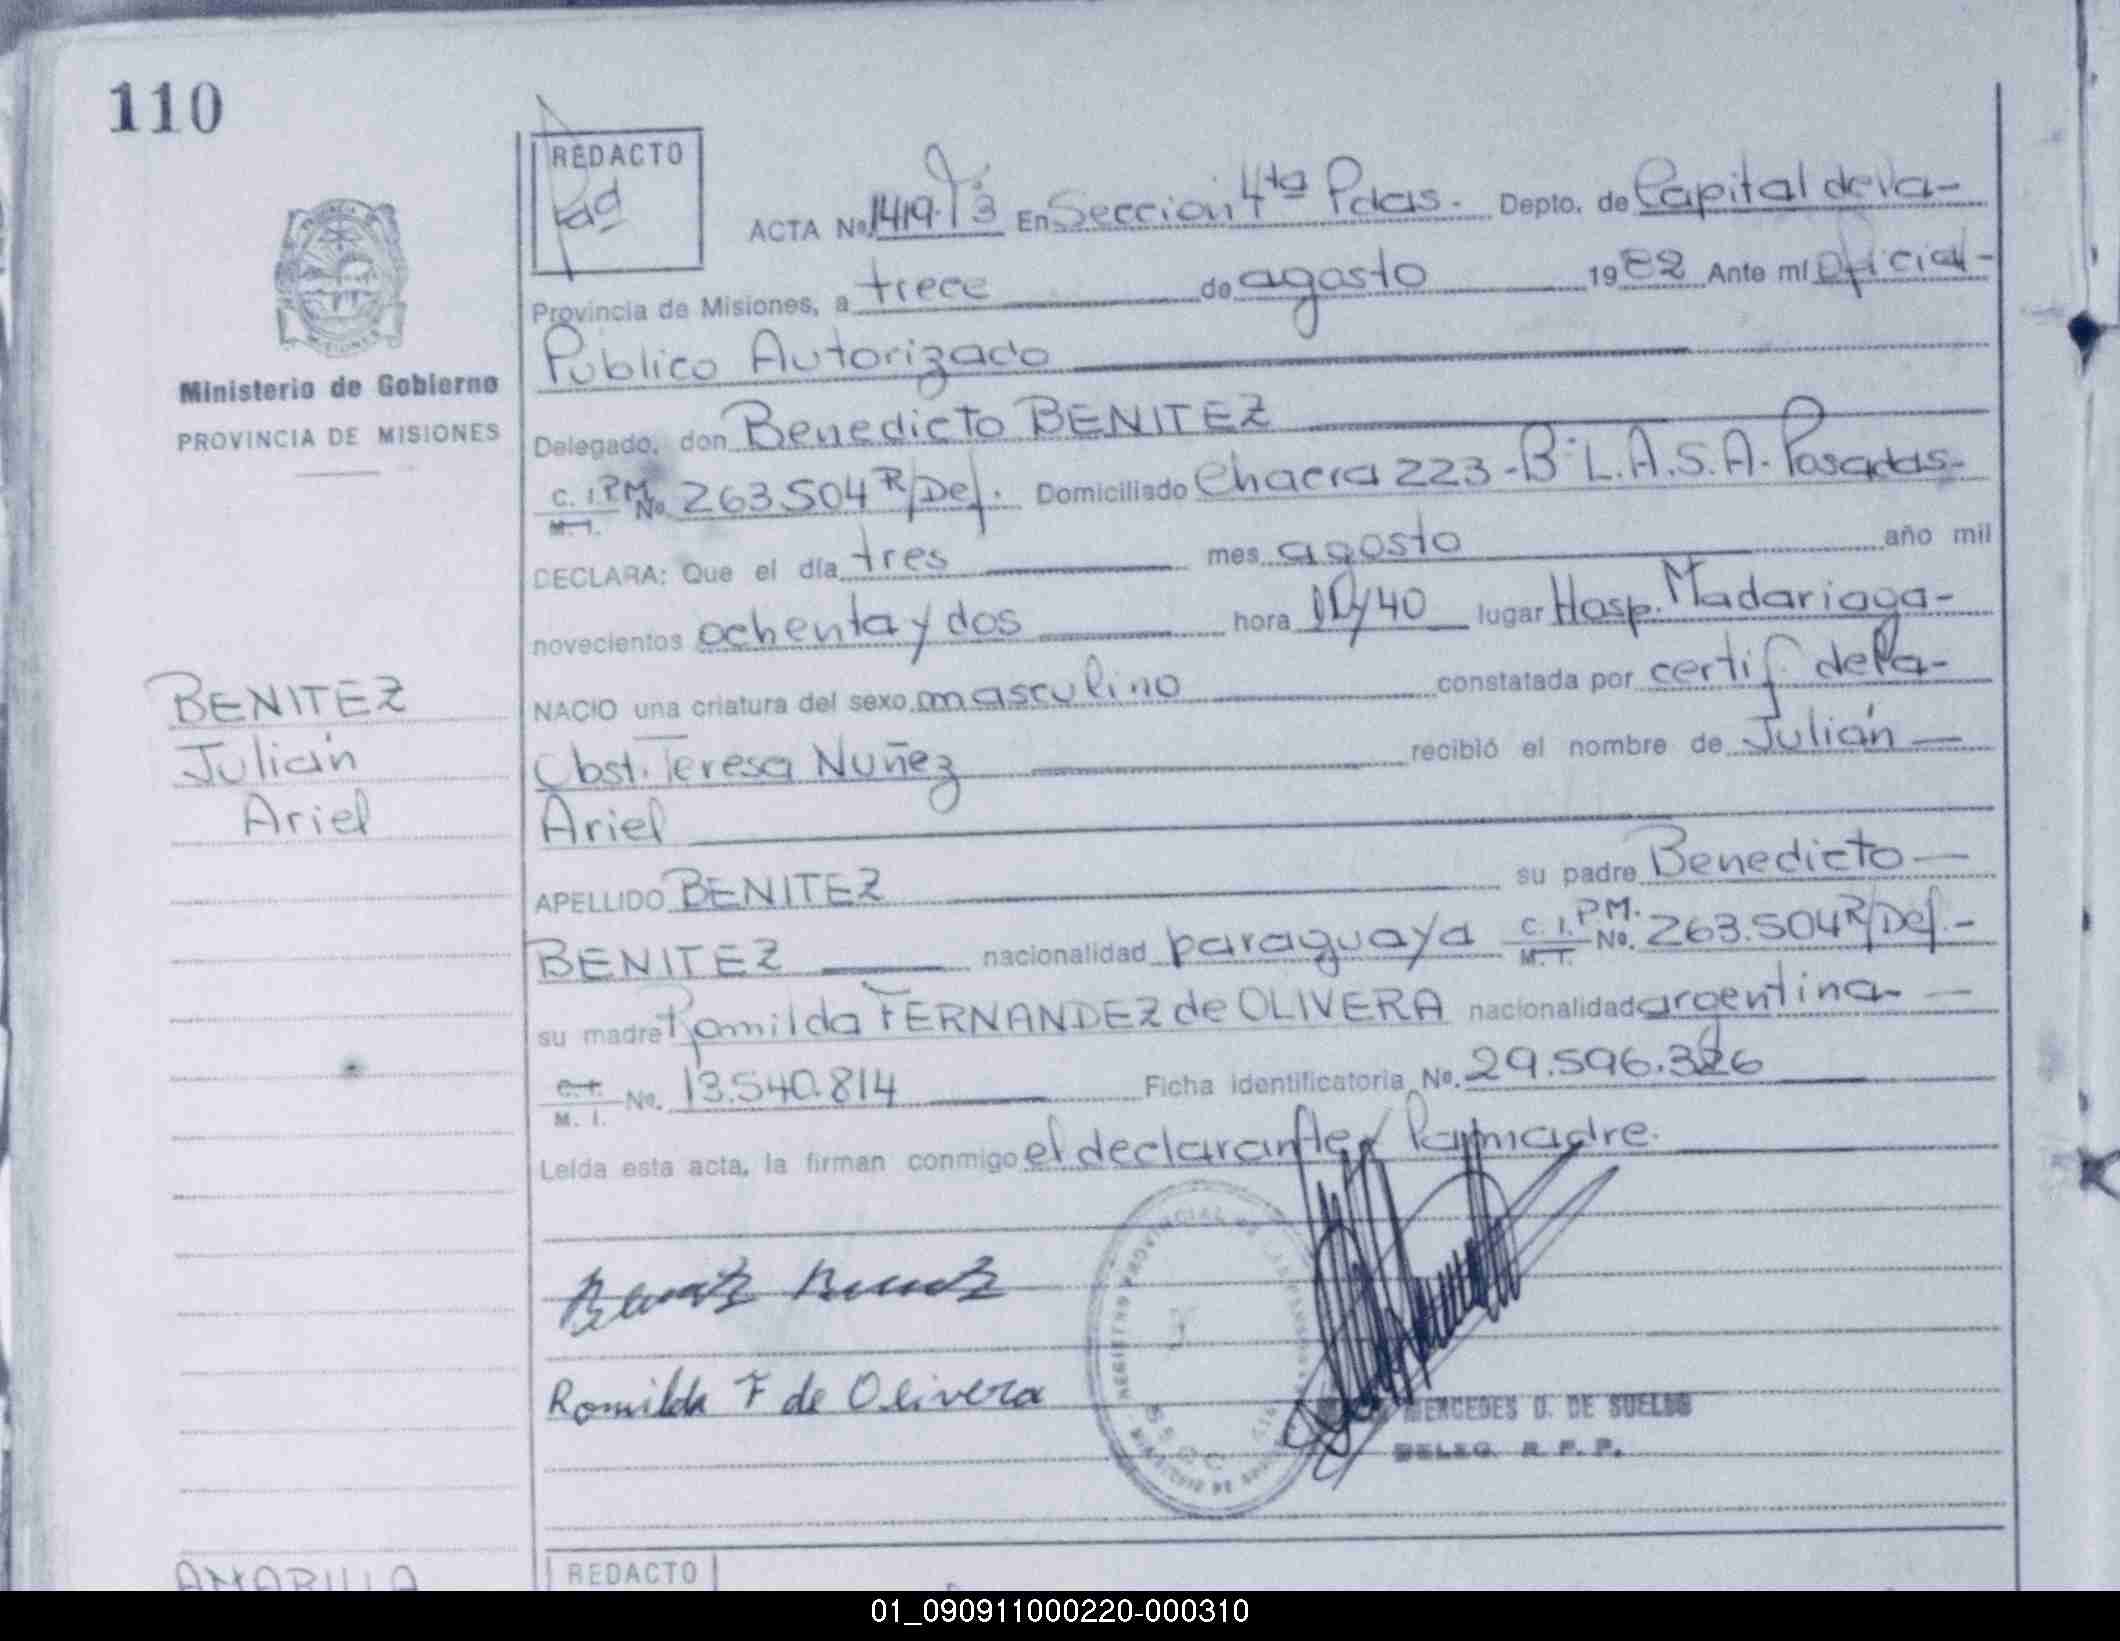 110
REDACTO
ACTA No. 1419. En Sección 4ta Pdas. - Depto. de Capital de la-
Provincia de Misiones, a trece de agosto 1982 Ante mí Oficial-
Público Autorizado
Ministerio de Gobierno
PROVINCIA DE MISIONES
Delegado, don Benedicto BENITEZ
C. I. P.M. No. 263.504 R/Def. Domiciliado Chacra 223 - Bº L.A.S.A. Posadas-
M. I.
DECLARA: Que el día tres mes agosto año mil
novecientos ochenta y dos hora /40 lugar Hosp. Madariaga-
NACIO una criatura del sexo masculino constatada por certif. de la-
Obst. Teresa Nuñez recibió el nombre de Julián
Ariel
BENITEZ
Julián
Ariel
APELLIDO BENITEZ su padre Benedicto
BENITEZ nacionalidad paraguaya C. I. P.M. No. 263.504 R/Def.-
M. I.
su madre Romilda FERNANDEZ de OLIVERA nacionalidad argentina-
C. I. No. 13.540.814 Ficha identificatoria No. 29.596.326
M. I.
Leída esta acta, la firman conmigo el declarante y la madre.
Romilda F de Olivera
MERCEDES D. DE SUELDO
DELEG. R. P. P.
AMARILLA
REDACTO
01_090911000220-000310